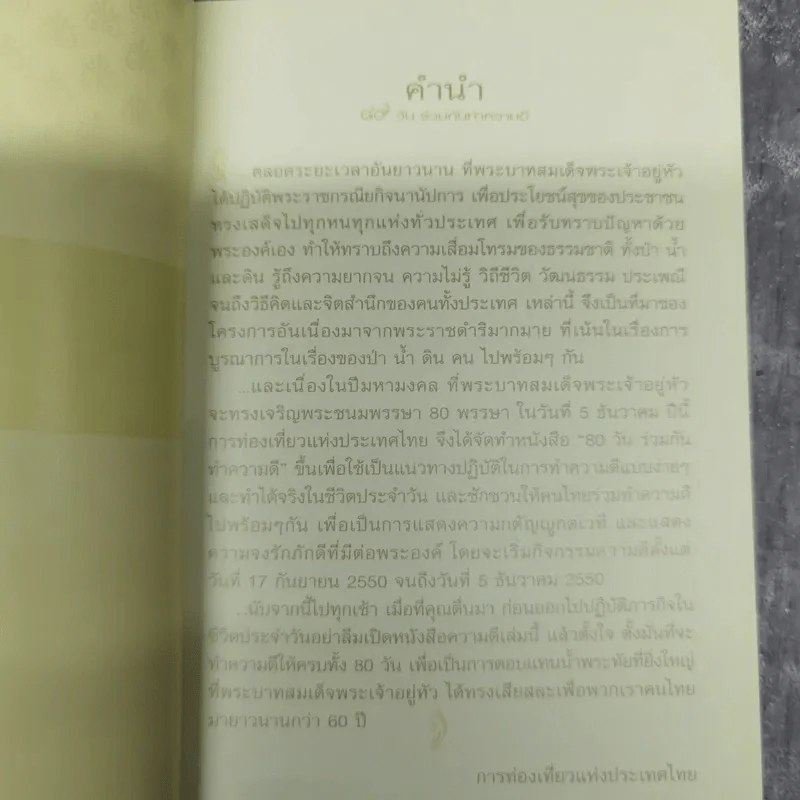 คำนำ
ตลอดระยะเวลาอันยาวนาน ที่พระบาทสมเด็จพระเจ้าอยู่หัว
ได้ปฏิบัติพระราชกรณียกิจนานัปการ เพื่อประโยชน์สุขของประชาชน
ทรงเสด็จไปทุกหนทุกแห่งทั่วประเทศ เพื่อรับทราบปัญหาด้วย
พระองค์เอง ทำให้ทราบถึงความเสื่อมโทรมของธรรมชาติ ทั้งป่า น้ำ
และดิน รู้ถึงความยากจน ความไม่รู้ วิถีชีวิต วัฒนธรรม ประเพณี
จนถึงวิธีคิดและจิตสำนึกของคนทั้งประเทศ เหล่านี้ จึงเป็นที่มาของ
โครงการอันเนื่องมาจากพระราชดำริมากมาย ที่เน้นในเรื่องการ
บูรณาการในเรื่องของป่า น้ำ ดิน คน ไปพร้อมๆ กัน
...และเนื่องในปีมหามงคล ที่พระบาทสมเด็จพระเจ้าอยู่หัว
จะทรงเจริญพระชนมพรรษา 80 พรรษา ในวันที่ 5 ธันวาคม ปีนี้
การท่องเที่ยวแห่งประเทศไทย จึงได้จัดทำหนังสือ “80 วัน ร่วมกัน
ทำความดี” ขึ้นเพื่อใช้เป็นแนวทางปฏิบัติในการทำความดีแบบง่ายๆ
และทำได้จริงในชีวิตประจำวัน และชักชวนให้คนไทยร่วมทำความดี
ไปพร้อมๆกัน เพื่อเป็นการแสดงความกตัญญูกตเวที และแสดง
ความจงรักภักดีที่มีต่อพระองค์ โดยจะเริ่มกิจกรรมความดีตั้งแต่
วันที่ 17 กันยายน 2550 จนถึงวันที่ 5 ธันวาคม 2550
...นับจากนี้ไปทุกเช้า เมื่อที่คุณตื่นมา ก่อนออกไปปฏิบัติภารกิจใน
ชีวิตประจำวันอย่าลืมเปิดหนังสือความดีเล่มนี้ แล้วตั้งใจ ตั้งมั่นที่จะ
ทำความดีให้ครบทั้ง 80 วัน เพื่อเป็นการตอบแทนน้ำพระทัยที่ยิ่งใหญ่
ที่พระบาทสมเด็จพระเจ้าอยู่หัว ได้ทรงเสียสละเพื่อพวกเราคนไทย
มายาวนานกว่า 60 ปี
การท่องเที่ยวแห่งประเทศไทย